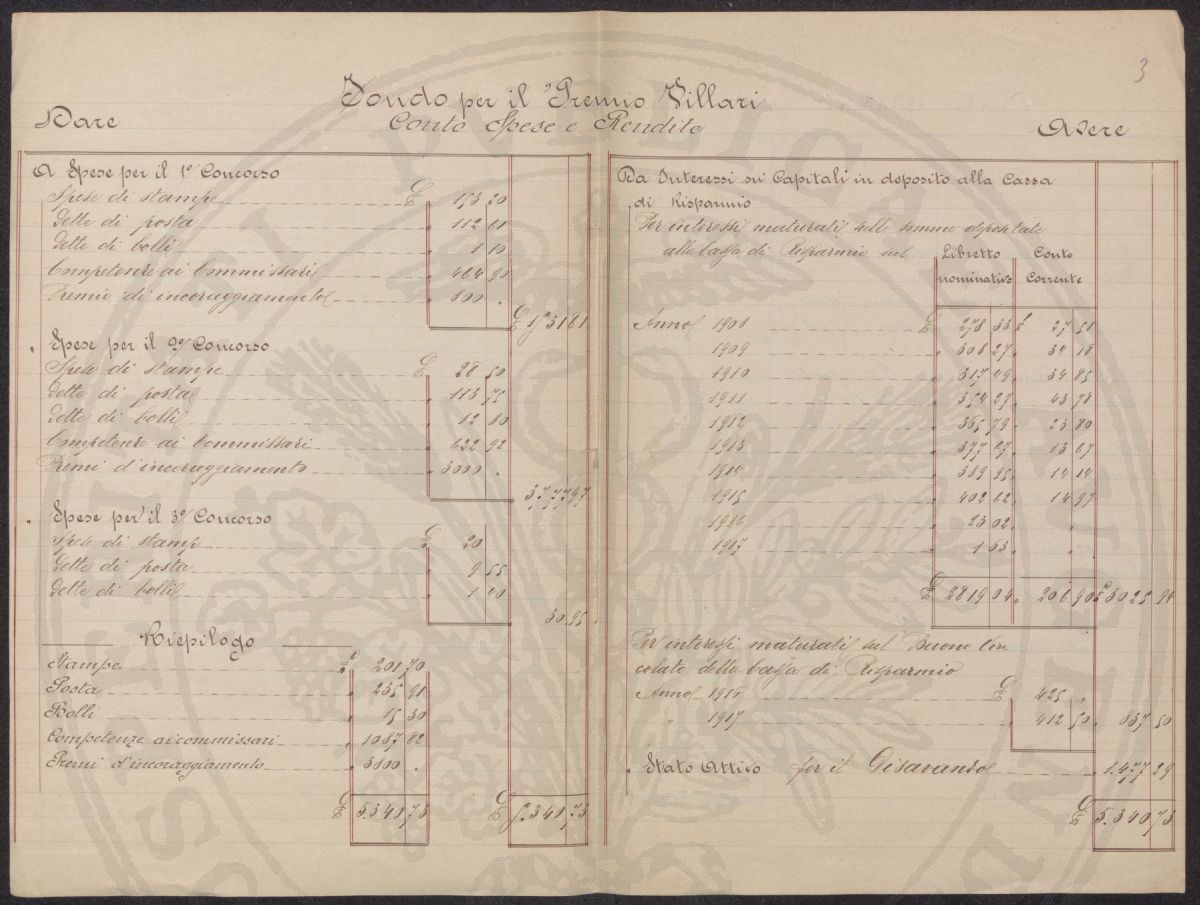 3
Fondo per il Premio Villari
Conto Spese e Rendite
Dare
Avere
A Spese per il 1º Concorso
Spese di stampe £ 153 20
Dette di posta " 112 61
Dette di bolli " 1 10
Competenze ai Commissari " 464 90
Premio di incoraggiamento " 800 "
£ 1531 81
" Spese per il 2º Concorso
Spese di stampe £ 28 50
Dette di posta " 113 75
Dette di bolli " 12 80
Competenze ai Commissari " 622 92
Premi d'incoraggiamento " 3000 "
" 3777 97
" Spese per il 3º Concorso
Spese di stampe £ 20
Dette di posta " 9 55
Dette di bolli " 1 40
30.95
Riepilogo
Stampe £ 201 70
Posta " 235 91
Bolli " 15 30
Competenze ai commissari " 1087 82
Premi d'incoraggiamento " 3800 "
£ 5.340 73 £ 5.340 73
Da Interessi su Capitali in deposito alla Cassa
di Risparmio
Per interessi maturati sulle somme depositate
alla Cassa di Risparmio sul Libretto nominativo Conto Corrente
Anno 1908 £ 278 33 £ 27 51
1909 " 308 27 " 34 18
1910 " 317 49 " 34 85
1911 " 354 27 " 43 78
1912 " 365 79 " 23 80
1913 " 377 67 " 13 67
1914 " 389 95 " 14 14
1915 " 402 62 " 14 97
1916 " 23 02 " "
1917 " 1 63 " "
£ 2819 04 " 206 90 £ 3025 94
Per interessi maturati sul Buono vin
colato della Cassa di Risparmio
Anno 1916 £ 425 "
" 1917 " 412 50 " 837 50
" Stato Attivo per il Disavanzo " 1.477 29
£ 5.340 73